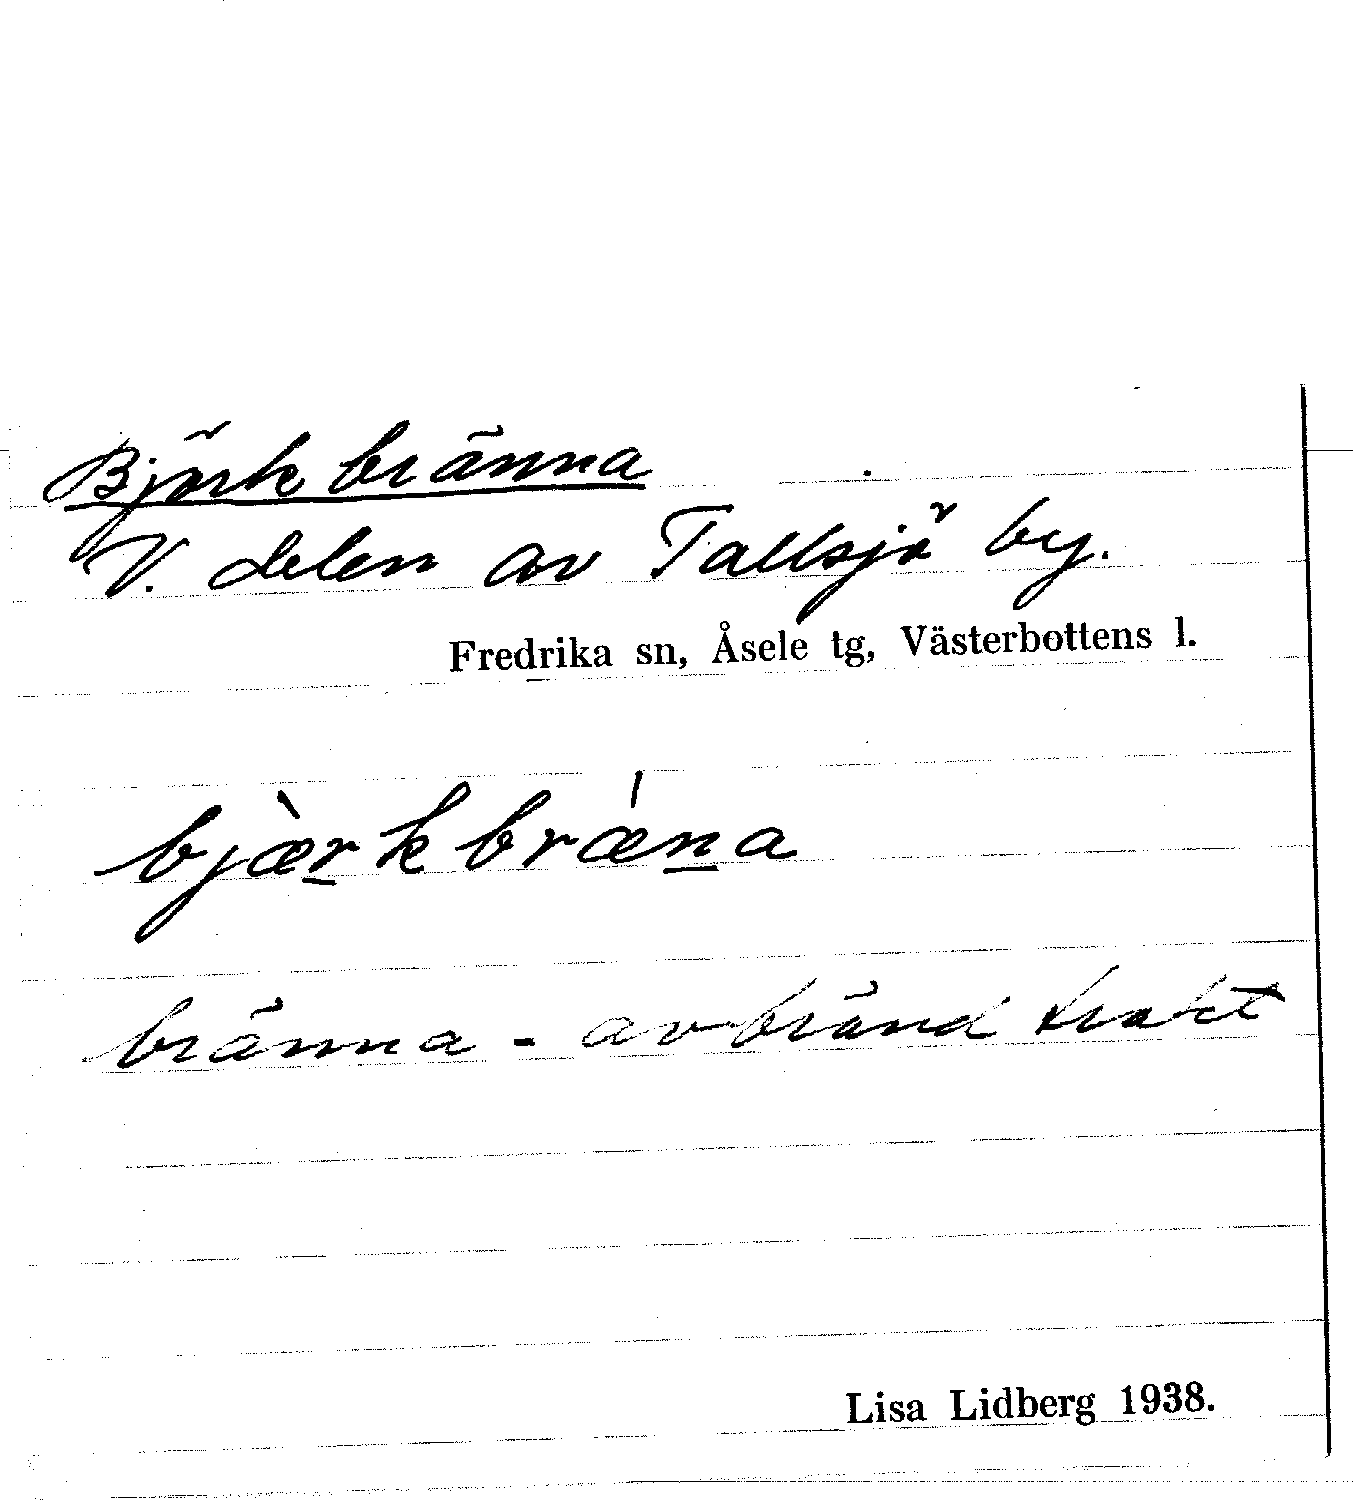 Björkbränna
V. delen av Tallsjö by.
Fredrika sn, Åsele tg, Västerbottens l.
bjæ̀r̲kbræ̍n̲a
bränna - avbränd trakt
Lisa Lidberg 1938.